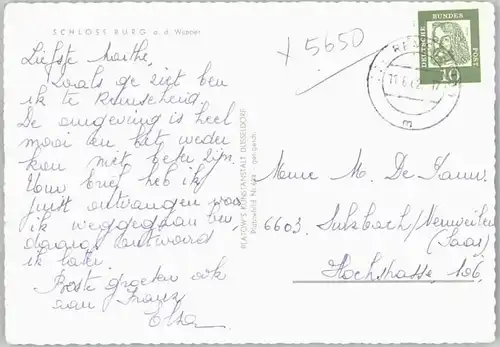 SCHLOSS BURG a. d. Wupper
Liefste Marthe,
Zoals ge ziet ben
ik te Remscheid.
De omgeving is heel
mooi en het weder
kon niet beter zijn.
Uw brief heb ik
juist ontvangen voor
ik weggegaan ben,
daarop antwoord
ik later.
Beste groeten ook
aan Franz
Elsa
PLATOW'S KUNSTANSTALT DÜSSELDORF
ges. gesch.
x 5650
DEUTSCHE BUNDES POST
10
11.6.62
m
Mme M. De
6603 Sulzbach/Neuweiler
(Saar)
Hochstrasse, 106,